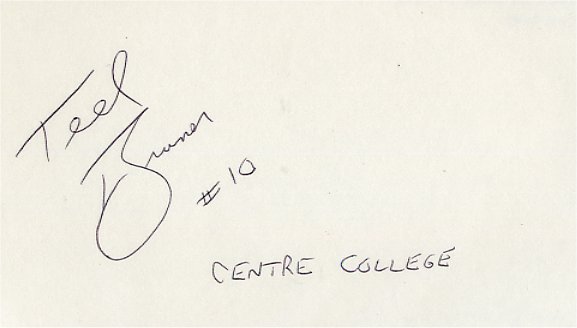 Teel
Bruner
#10
CENTRE COLLEGE